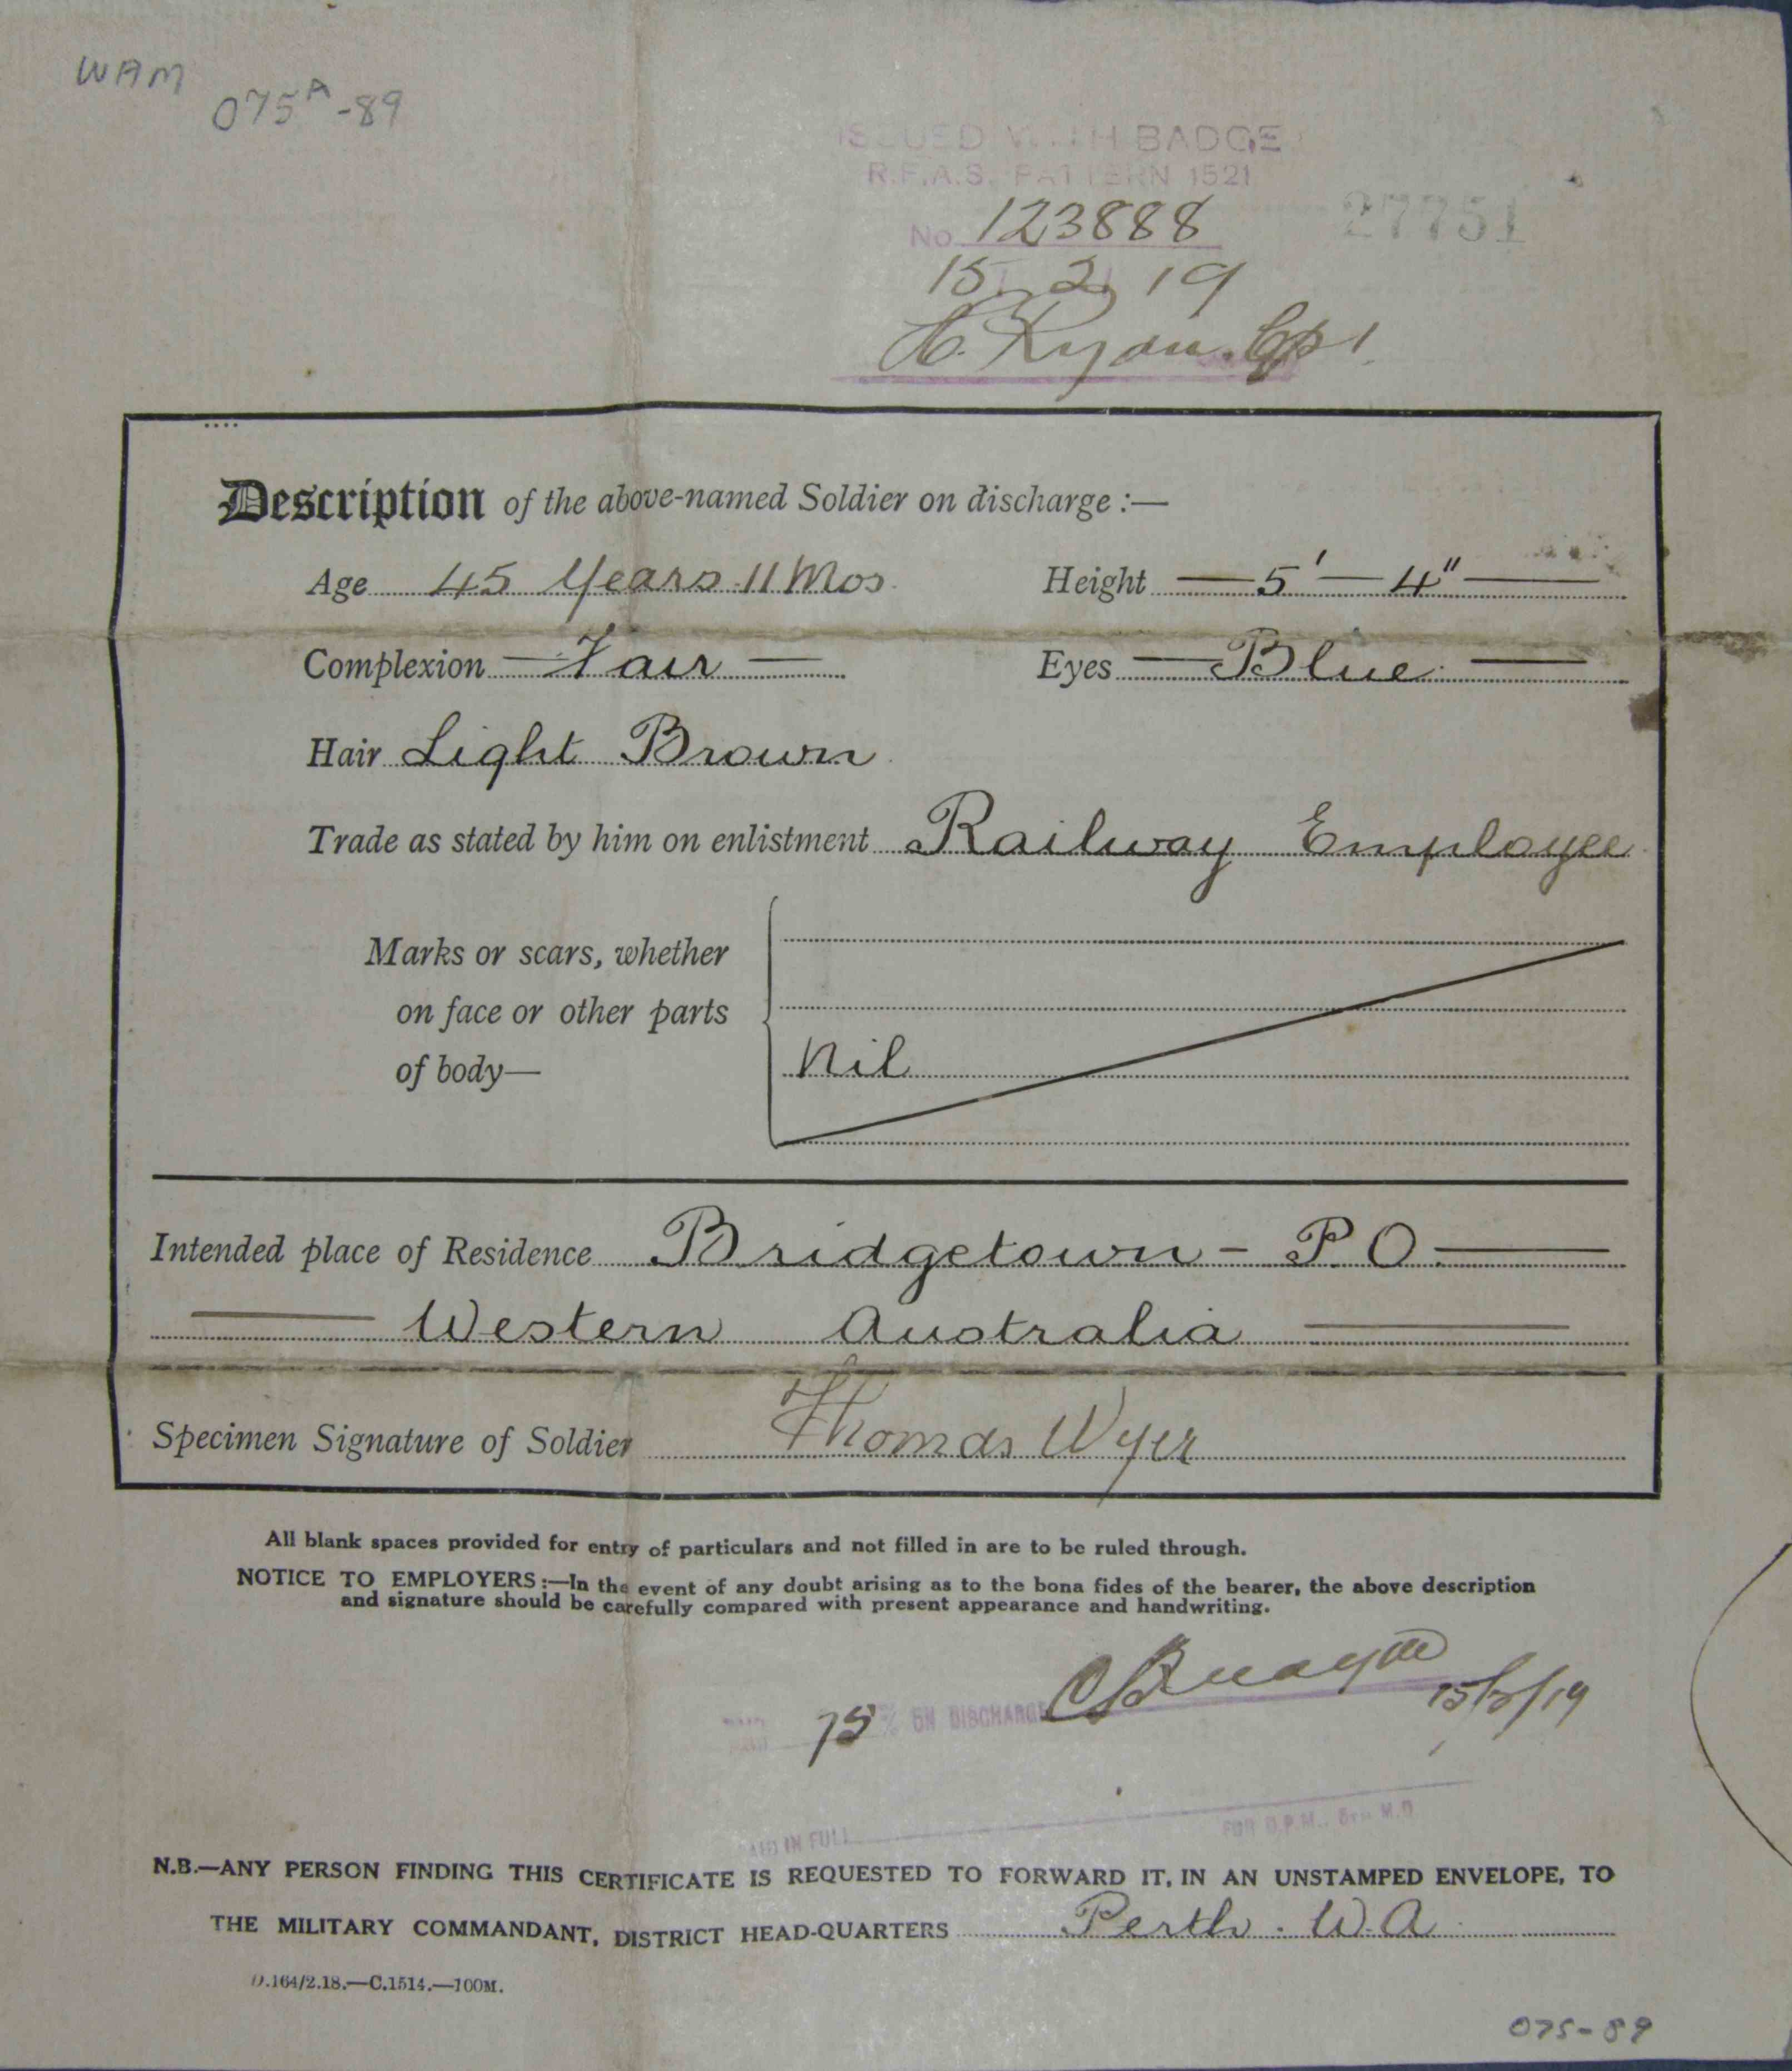 WAM
075A-89
ISSUED WITH BADGE
R.F.A.S. PATTERN 1521
No. 123888
27751
15. 2. 19
Ryan. Cpl.
Description of the above-named Soldier on discharge :—
Age 45 Years 11 Mos. Height 5' — 4"
Complexion Fair Eyes Blue
Hair Light Brown
Trade as stated by him on enlistment Railway Employee
Marks or scars, whether
on face or other parts
of body— Nil
Intended place of Residence Bridgetown - P.O.
Western Australia
Specimen Signature of Soldier Thomas Wyer
All blank spaces provided for entry of particulars and not filled in are to be ruled through.
NOTICE TO EMPLOYERS :—In the event of any doubt arising as to the bona fides of the bearer, the above description
and signature should be carefully compared with present appearance and handwriting.
75 % ON DISCHARGE 15/2/19
IN FULL FOR D.P.M., 5TH M.D.
N.B.—ANY PERSON FINDING THIS CERTIFICATE IS REQUESTED TO FORWARD IT, IN AN UNSTAMPED ENVELOPE, TO
THE MILITARY COMMANDANT, DISTRICT HEAD-QUARTERS Perth. W.A.
D.164/2.18.—C.1514.—100M.
075-89